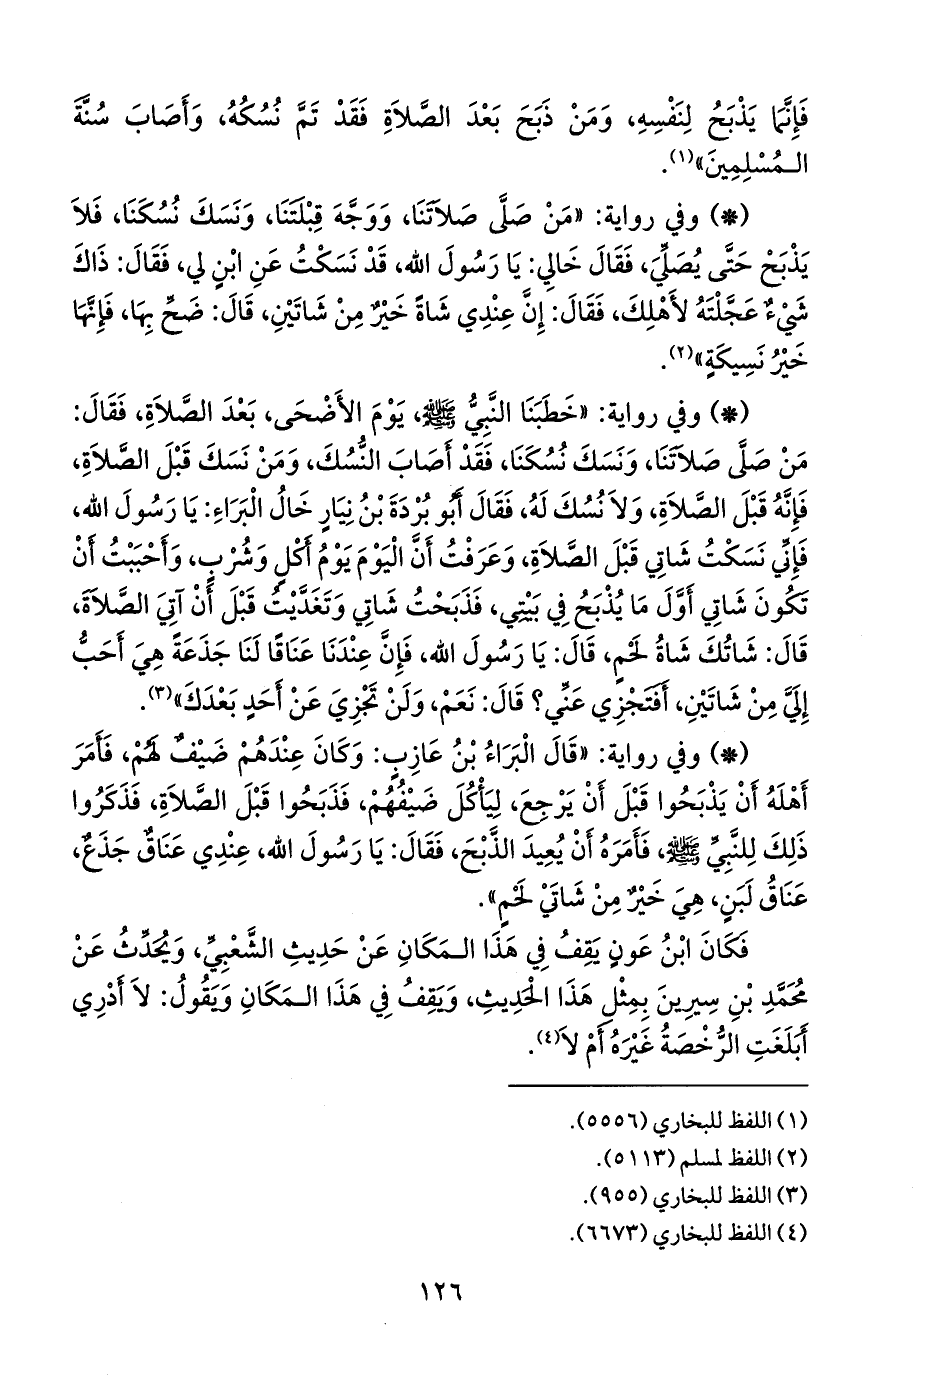 فَإِنَّمَا يَذْبَحُ لِنَفْسِهِ، وَمَنْ ذَبَحَ بَعْدَ الصَّلاَةِ فَقَدْ تَمَّ نُسُكُهُ، وَأَصَابَ سُنَّةَ
الـمُسْلِمِينَ»(١).
(*) وفي رواية: «مَنْ صَلَّى صَلاَتَنَا، وَوَجَّهَ قِبْلَتَنَا، وَنَسَكَ نُسُكَنَا، فَلاَ
يَذْبَحْ حَتَّى يُصَلِّيَ، فَقَالَ خَالِي: يَا رَسُولَ الله، قَدْ نَسَكْتُ عَنِ ابْنٍ لِي، فَقَالَ: ذَاكَ
شَيْءٌ عَجَّلْتَهُ لأَهْلِكَ، فَقَالَ: إِنَّ عِنْدِي شَاةً خَيْرٌ مِنْ شَاتَيْنِ، قَالَ: ضَحِّ بِهَا، فَإِنَّهَا
خَيْرُ نَسِيكَةٍ»(٢).
(*) وفي رواية: «خَطَبَنَا النَّبِيُّ ﷺ، يَوْمَ الأَضْحَى، بَعْدَ الصَّلاَةِ، فَقَالَ:
مَنْ صَلَّى صَلاَتَنَا، وَنَسَكَ نُسُكَنَا، فَقَدْ أَصَابَ النُّسُكَ، وَمَنْ نَسَكَ قَبْلَ الصَّلاَةِ،
فَإِنَّهُ قَبْلَ الصَّلاَةِ، وَلاَ نُسُكَ لَهُ، فَقَالَ أَبُو بُرْدَةَ بْنُ نِيَارٍ خَالُ الْبَرَاءِ: يَا رَسُولَ الله،
فَإِنِّي نَسَكْتُ شَاتِي قَبْلَ الصَّلاَةِ، وَعَرَفْتُ أَنَّ الْيَوْمَ يَوْمُ أَكْلٍ وَشُرْبٍ، وَأَحْبَبْتُ أَنْ
تَكُونَ شَاتِي أَوَّلَ مَا يُذْبَحُ فِي بَيْتِي، فَذَبَحْتُ شَاتِي وَتَغَدَّيْتُ قَبْلَ أَنْ آتِيَ الصَّلاَةَ،
قَالَ: شَاتُكَ شَاةُ لَحْمٍ، قَالَ: يَا رَسُولَ الله، فَإِنَّ عِنْدَنَا عَنَاقًا لَنَا جَذَعَةً هِيَ أَحَبُّ
إِلَيَّ مِنْ شَاتَيْنِ، أَفَتَجْزِي عَنِّي؟ قَالَ: نَعَمْ، وَلَنْ تَجْزِيَ عَنْ أَحَدٍ بَعْدَكَ»(٣).
(*) وفي رواية: «قَالَ الْبَرَاءُ بْنُ عَازِبٍ: وَكَانَ عِنْدَهُمْ ضَيْفٌ لَهُمْ، فَأَمَرَ
أَهْلَهُ أَنْ يَذْبَحُوا قَبْلَ أَنْ يَرْجِعَ، لِيَأْكُلَ ضَيْفُهُمْ، فَذَبَحُوا قَبْلَ الصَّلاَةِ، فَذَكَرُوا
ذَلِكَ لِلنَّبِيِّ ﷺ، فَأَمَرَهُ أَنْ يُعِيدَ الذَّبْحَ، فَقَالَ: يَا رَسُولَ الله، عِنْدِي عَنَاقٌ جَذَعٌ،
عَنَاقُ لَبَنٍ، هِيَ خَيْرٌ مِنْ شَاتَيْ لَحْمٍ».
فَكَانَ ابْنُ عَونٍ يَقِفُ فِي هَذَا الـمَكَانِ عَنْ حَدِيثِ الشَّعْبِيِّ، وَيُحَدِّثُ عَنْ
مُحَمَّدِ بْنِ سِيرِينَ بِمِثْلِ هَذَا الْحَدِيثِ، وَيَقِفُ فِي هَذَا الـمَكَانِ وَيَقُولُ: لاَ أَدْرِي
أَبَلَغَتِ الرُّخْصَةُ غَيْرَهُ أَمْ لاَ(٤).
(١) اللفظ للبخاري (٥٥٥٦).
(٢) اللفظ لمسلم (٥١١٣).
(٣) اللفظ للبخاري (٩٥٥).
(٤) اللفظ للبخاري (٦٦٧٣).
١٢٦